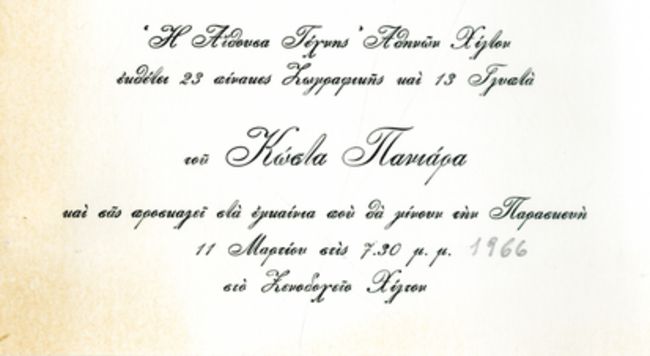 Ἡ Αἴθουσα Τέχνης Ἀθηνῶν Χίλτον
ἐκθέτει 23 πίνακες Ζωγραφικῆς καὶ 13 Γλυπτὰ
τοῦ Κώστα Πανιάρα
καὶ σᾶς προσκαλεῖ στὰ ἐγκαίνια ποὺ θὰ γίνουν τὴν Παρασκευὴ
11 Μαρτίου στὶς 7.30 μ. μ. 1966
στὸ Ξενοδοχεῖο Χίλτον